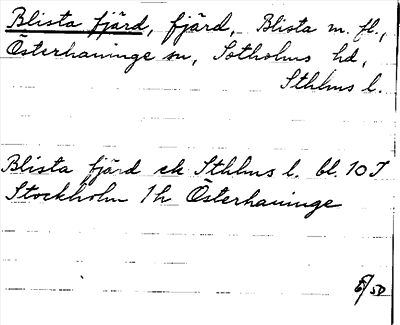 Blista fjärd, fjärd, Blista m. fl.,
Österhaninge sn, Sotholms hd,
Sthlms l.
Blista fjärd ek Sthlms l. bl. 10 I
Stockholm 1h Österhaninge
6/50